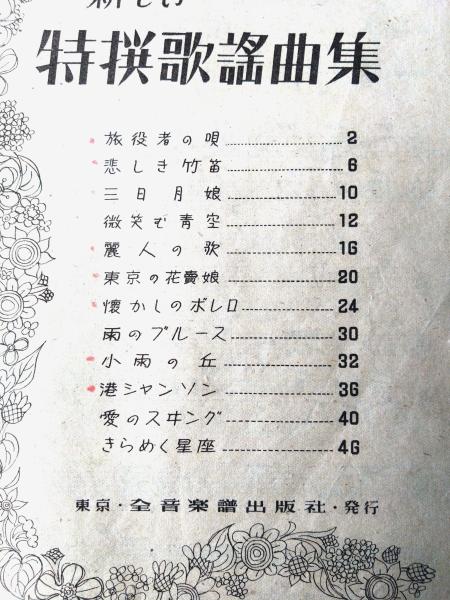 新しい
特撰歌謡曲集
旅役者の唄 2
悲しき竹笛 6
三日月娘 10
微笑む青空 12
麗人の歌 16
東京の花賣娘 20
懐かしのボレロ 24
雨のブルース 30
小雨の丘 32
港シャンソン 36
愛のスヰング 40
きらめく星座 46
東京・全音楽譜出版社・発行